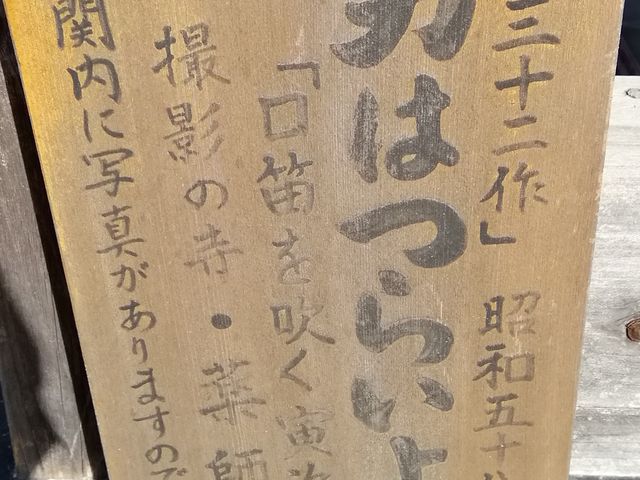 三十二作」 昭和五十
男はつらいよ
「口笛を吹く寅次
撮影の寺・薬師
関内に写真がありますので